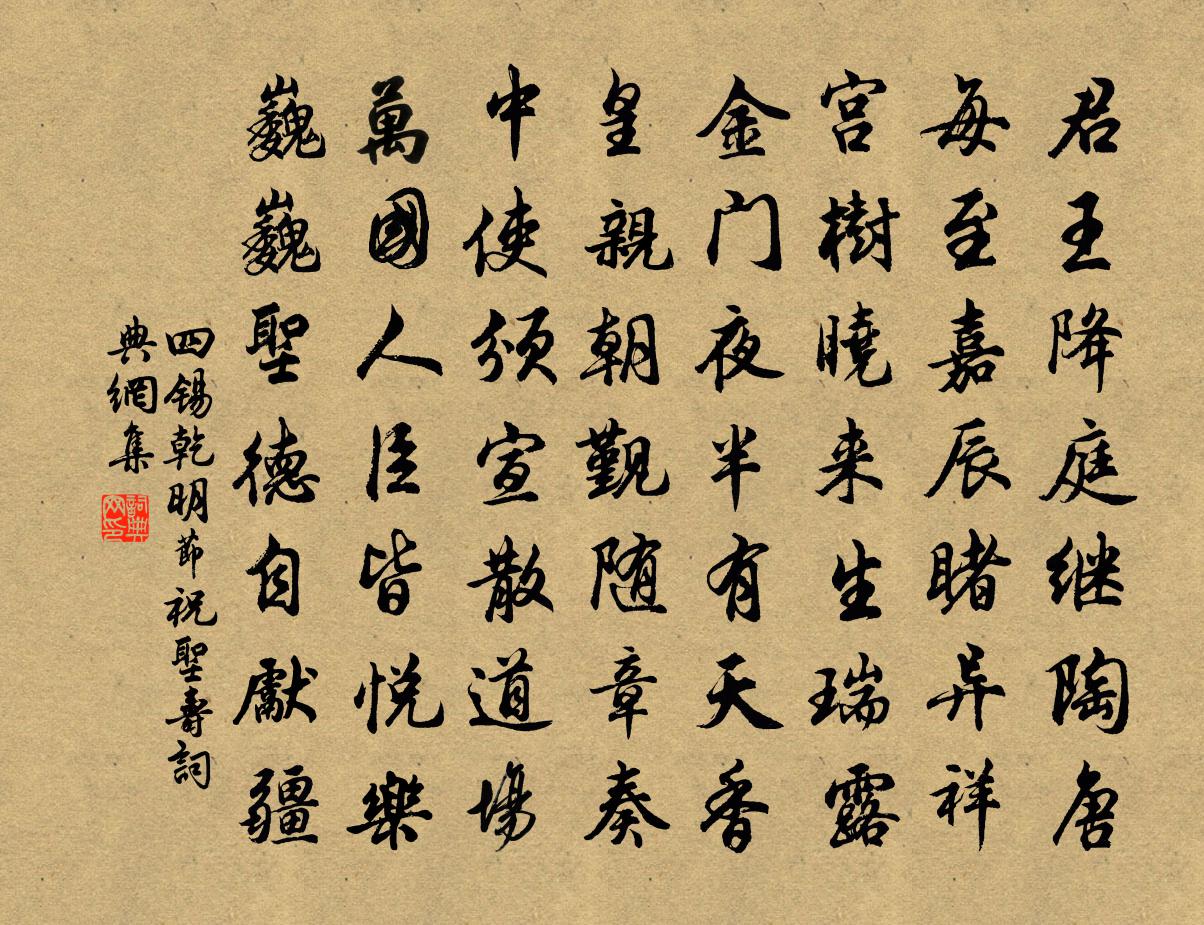 君王降庭继陶唐
每至嘉辰睹异祥
宫樹曉来生瑞露
金门夜半有天香
皇親朝覲随章奏
中使頒宣散道場
萬國人臣皆悦樂
巍巍聖德自獻疆
四锡乾明節祝聖壽詞
典網集
詞典网印